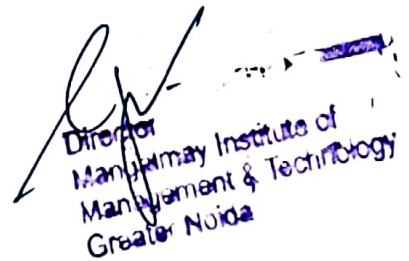 Director
Mangalmay Institute of
Management & Technology
Greater Noida